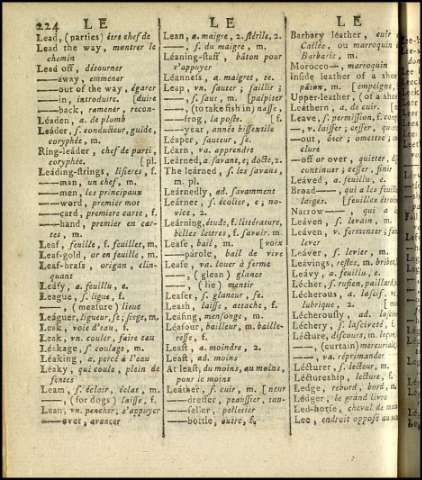 224 LE LE LE
Lead, (parties) être chef de
Lead the way, montrer le
chemin
Lead off, détourner
—away, emmener
—out of the way, égarer
—in, introduire, [duire
—back, ramener, recon-
Léaden, a. de plomb
Léader, s. conducteur, guide,
coryphée, m.
Ring-leader, chef de parti,
coryphée. [pl.
Léading-strings, lisieres, f.
—man, un chef, m.
—men, les principaux
—word, premier mot
—card, premiere carte, f.
—hand, premier en car-
tes, m.
Leaf, feuille, f. feuillet, m.
Leaf-gold, or en feuille, m.
Leaf-brass, oripeau, clin-
quant
Léafy, a. feuillu, e.
League, s. ligue, f.
—, (measure) lieue
Léaguer, ligueur, se; siege, m.
Leak, voie d'eau, f.
Leak, vn. couler, faire eau
Léakage, s. coulage, m.
Léaking, a. percé à l'eau
Léaky, qui coule, plein de
fentes
Leam, s. éclair, éclat, m.
—, (for dogs) laisse, f.
Lean, vn. pencher, s'appuyer
—over, avancer
Lean, a. maigre, 2. stérile, 2.
—, s. du maigre, m.
Léaning-stuff, bâton pour
s'appuyer
Léanness, s. maigret, te.
Leap, vn. sauter, saillir;
—, s. saut, m. [palpiter
—, (to take fish in) nasse,
—frog, la poste. [f.
—year, année bissextile
Léaper, sauteur, se.
Learn, va. apprendre
Léarned, a. savant, e; docte, 2.
The learned, s. les savans,
m. pl.
Léarnedly, ad. savamment
Léarner, s. écolier, e; no-
vice, 2.
Learning, étude, f. littérature,
belles lettres, f. savoir, m.
Lease, bail, m. [voix
—parole, bail de vive
Lease, va. louer à ferme
—, (glean) glaner
—, (lie) mentir
Leaser, s. glaneur, se.
Leash, laisse, attache, f.
Leasing, mensonge, m.
Léassour, bailleur, m. baille-
resse, f.
Least, a. moindre, 2.
Least, ad. moins
At least, du moins, au moins,
pour le moins
Leáther, s. cuir, m. [neur
—dresser, peaussier, tan-
—seller, pelletier
—bottle, outre, f.
Barbary leather, cuir
Callee, ou marroquin
Barbarie, m.
Morocco—, marroquin
Inside leather of a shoe
patton, m. [empeigne,
Upper-leather, (of a sho
Leáthern, a. de cuir. [
Leave, s. permission, f. con
—, v. laisser; cesser, quit
—out, ôter; omettre; a
clure
—off or over, quitter, d
continuer; cesser, finir
Leaved, a. feuillu, e.
Broad— qui a les feuil
larges. [feuilles étroi
Narrow—, qui a l
Léaven, s. levain, m.
Léaven, v. fermenter; fai
lever
Léaver, s. levier, m.
Léavings, restes, m. bribes,
Leávy, a. feuillu, e.
Lécher, s. ruffien, paillard,
Lécherous, a. lascif, v
lubrique, 2.
Lécherously, ad. lascive
Léchery, s. lasciveté, f.
Lécture, discours, m. leçon,
—, (curtain) mercuriale,
—, va. réprimander
Lécturer, s. lecteur, m.
Léctureship, lecture, f.
Ledge, rebord, bord, m.
Lédger, le grand livre
Led-horse, cheval de main
Lee, endroit opposé au